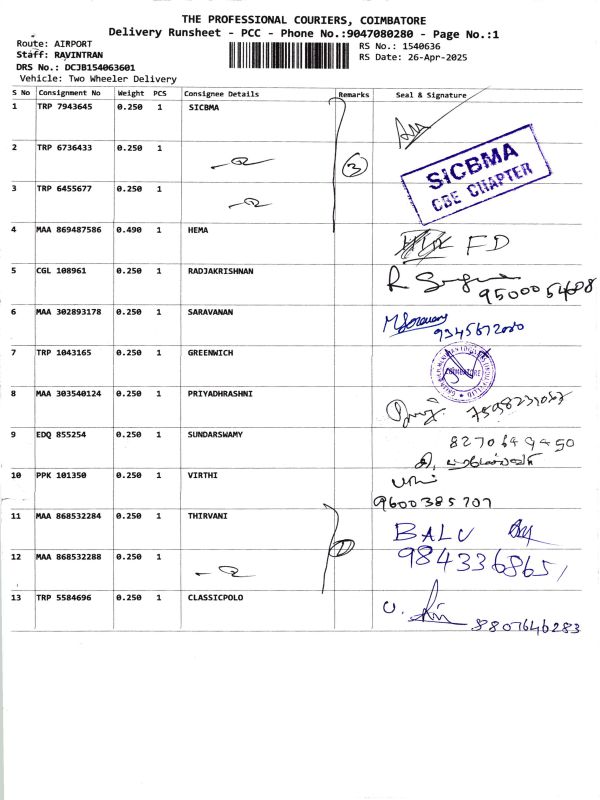 THE PROFESSIONAL COURIERS, COIMBATORE
Delivery Runsheet - PCC - Phone No.:9047080280 - Page No.:1
Route: AIRPORT
Staff: RAVINTRAN
DRS No.: DCJB154063601
Vehicle: Two Wheeler Delivery
RS No.: 1540636
RS Date: 26-Apr-2025
S No Consignment No Weight PCS Consignee Details Remarks Seal & Signature
1 TRP 7943645 0.250 1 SICBMA
2 TRP 6736433 0.250 1
3
SICBMA
CBE CHAPTER
3 TRP 6455677 0.250 1
4 MAA 869487586 0.490 1 HEMA FD
5 CGL 108961 0.250 1 RADJAKRISHNAN R
6 MAA 302893178 0.250 1 SARAVANAN M Saravanan
7 TRP 1043165 0.250 1 GREENWICH
COIMBATORE
8 MAA 303540124 0.250 1 PRIYADHRASHNI
9 EDQ 855254 0.250 1 SUNDARSWAMY
10 PPK 101350 0.250 1 VIRTHI
9600385707
11 MAA 868532284 0.250 1 THIRVANI BALU
12 MAA 868532288 0.250 1 9843368651
13 TRP 5584696 0.250 1 CLASSICPOLO
8807646283